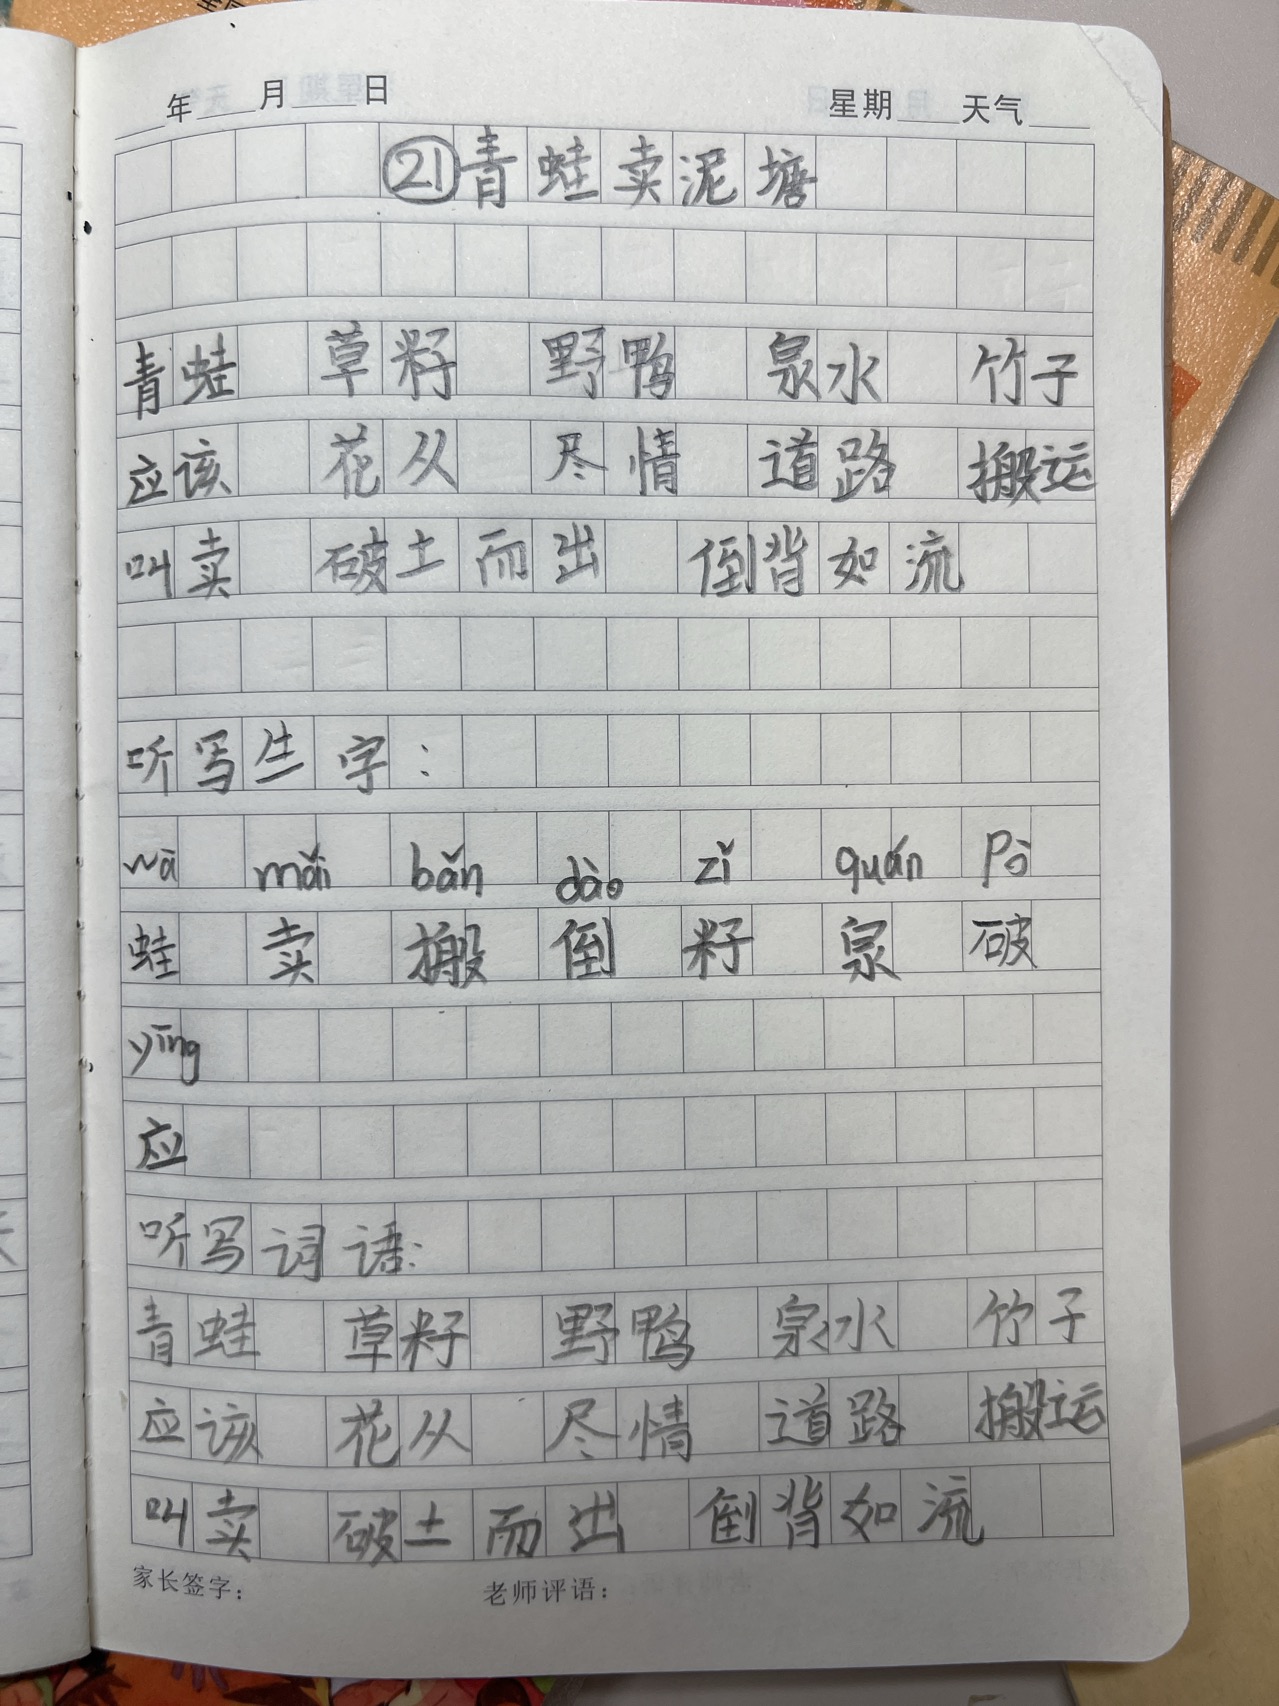 年 月 日 星期 天气
㉑青蛙卖泥塘
青蛙 草籽 野鸭 泉水 竹子
应该 花从 尽情 道路 搬运
叫卖 破土而出 倒背如流
听写生字：
wā mǎi bǎn dào zǐ quán pò
蛙 卖 搬 倒 籽 泉 破
yīng
应
听写词语：
青蛙 草籽 野鸭 泉水 竹子
应该 花从 尽情 道路 搬运
叫卖 破土而出 倒背如流
家长签字： 老师评语：